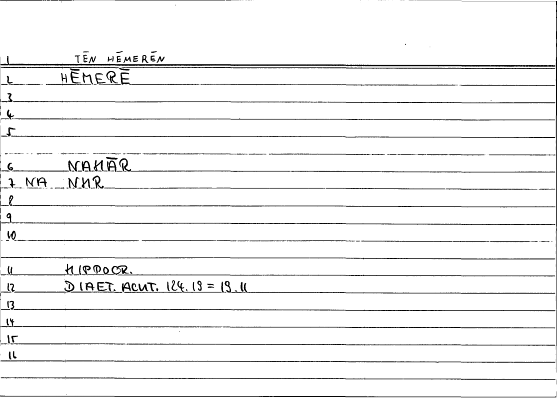 1 TĒN HĒMERĒN
2 HĒMERĒ
3
4
5
6 NAHĀR
7 NA NHR
8
9
10
11 HIPPOCR.
12 DIAET. ACUT. 124.19 = 19.11
13
14
15
16